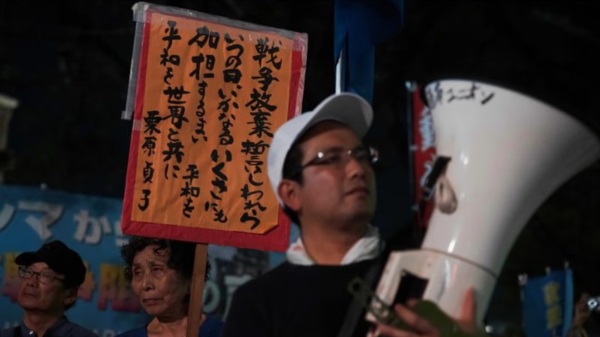 戦争放棄 誓いしわれら
いつの日いかなるいくさにも
加担するまい 平和を
平和を世界と共に
栗原貞子
シマか